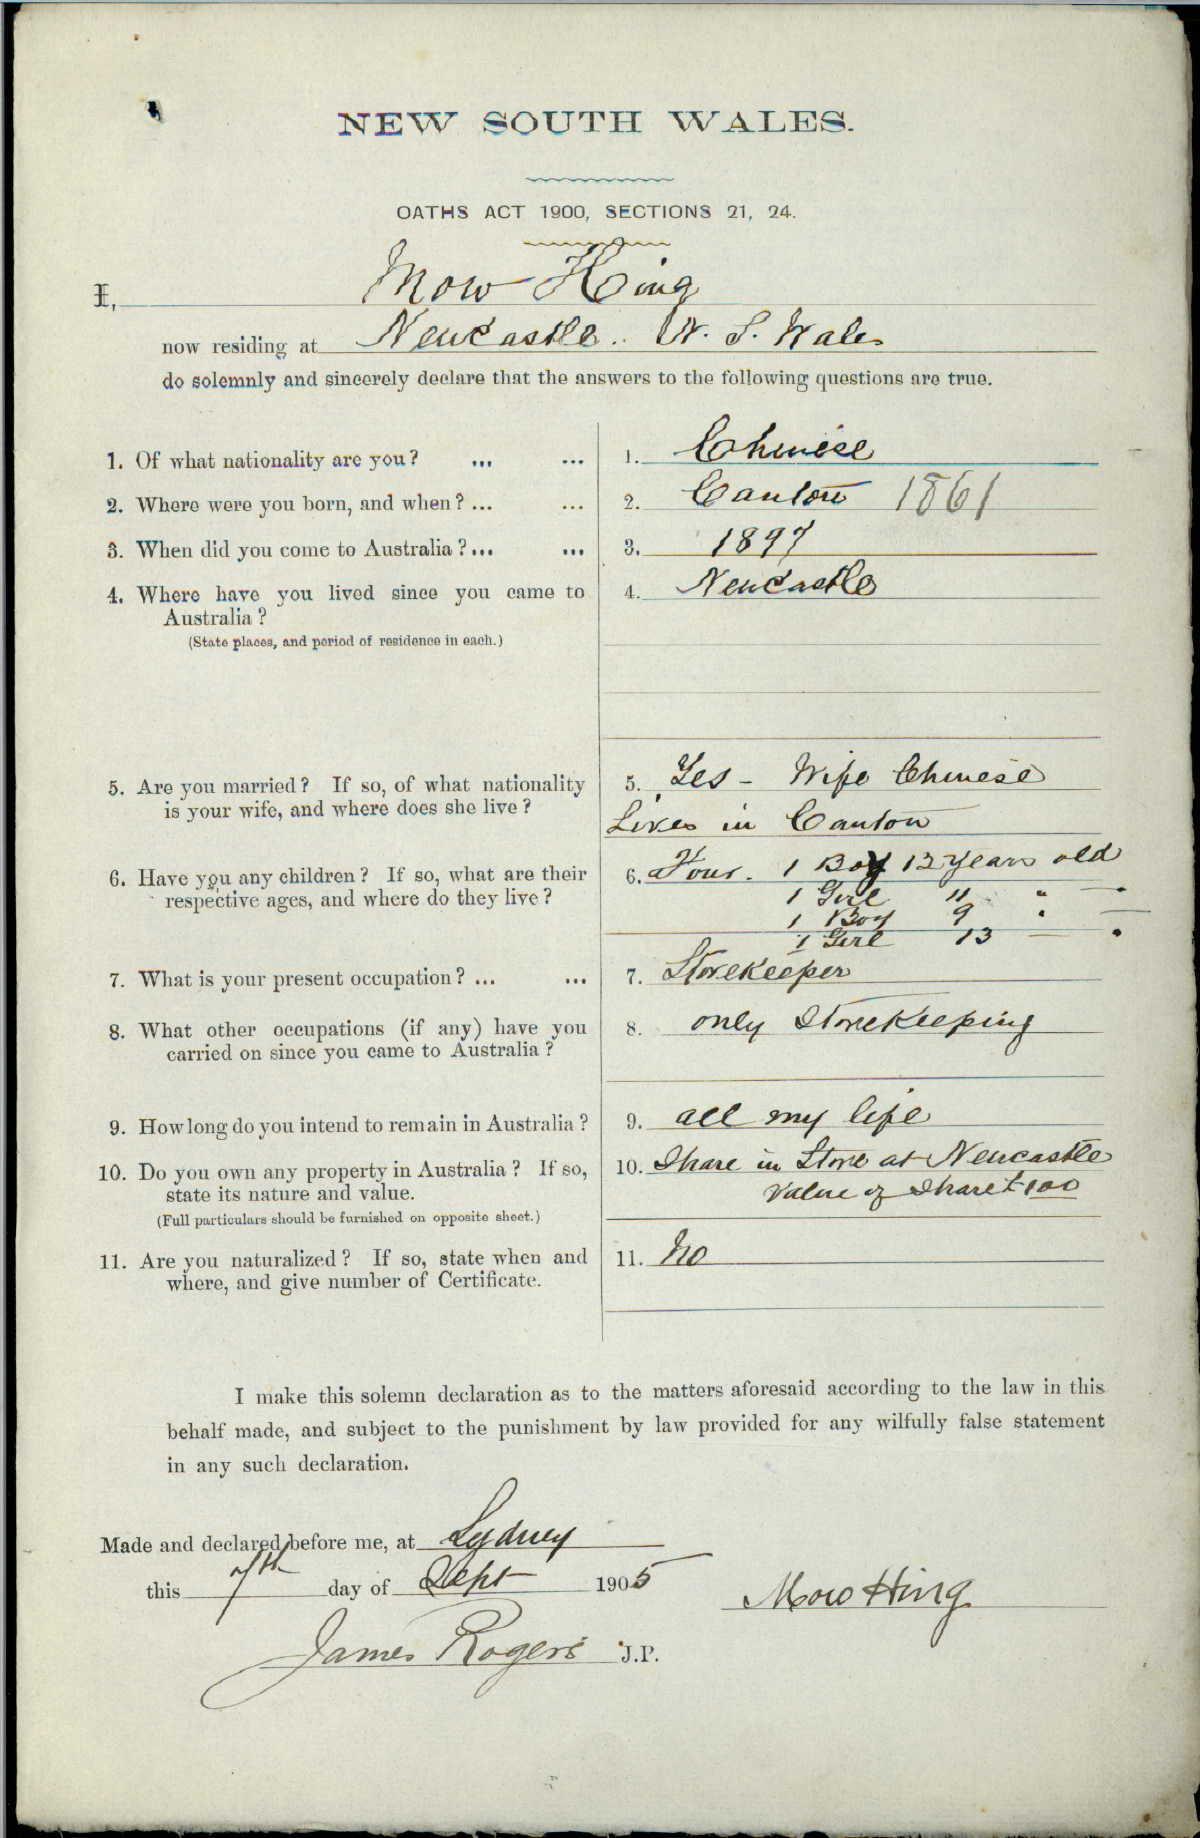 NEW SOUTH WALES.
OATHS ACT 1900, SECTIONS 21, 24.
I, Mow Hing
now residing at Newcastle.. N. S. Wales
do solemnly and sincerely declare that the answers to the following questions are true.
1. Of what nationality are you? ... ... 1. Chinese
2. Where were you born, and when? ... ... 2. Canton 1861
3. When did you come to Australia? ... ... 3. 1897
4. Where have you lived since you came to 4. Newcastle
Australia?
(State places, and period of residence in each.)
5. Are you married? If so, of what nationality 5. Yes - Wife Chinese
is your wife, and where does she live? Lives in Canton
6. Have you any children? If so, what are their 6. Four. 1 Boy 13 years old
respective ages, and where do they live? 1 Girl 11 " "
1 Boy 9 " "
1 Girl 13 — "
7. What is your present occupation? ... ... 7. Storekeeper
8. What other occupations (if any) have you 8. only Storekeeping
carried on since you came to Australia?
9. How long do you intend to remain in Australia? 9. all my life
10. Do you own any property in Australia? If so, 10. Share in Store at Newcastle
state its nature and value. Value of Share £100
(Full particulars should be furnished on opposite sheet.)
11. Are you naturalized? If so, state when and 11. No
where, and give number of Certificate.
I make this solemn declaration as to the matters aforesaid according to the law in this
behalf made, and subject to the punishment by law provided for any wilfully false statement
in any such declaration.
Made and declared before me, at Sydney
this 7th day of Sept 1905
Mow Hing
James Rogers J.P.